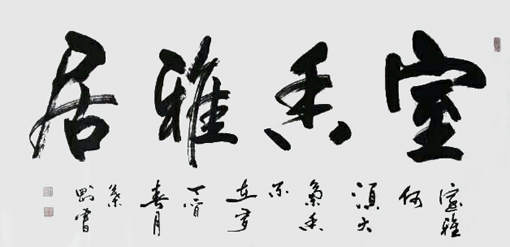 室香雅居
室雅
何
須大
香
不
在多
丁酉
春月